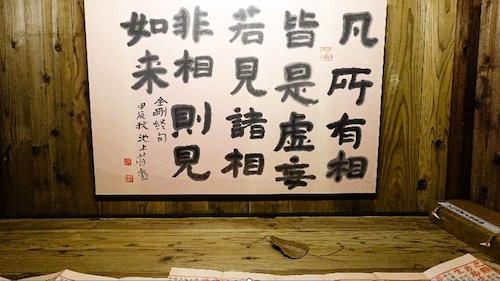 凡所有相
皆是虛妄
若見諸相
非相則見
如来
金剛経句
甲辰秋 池上